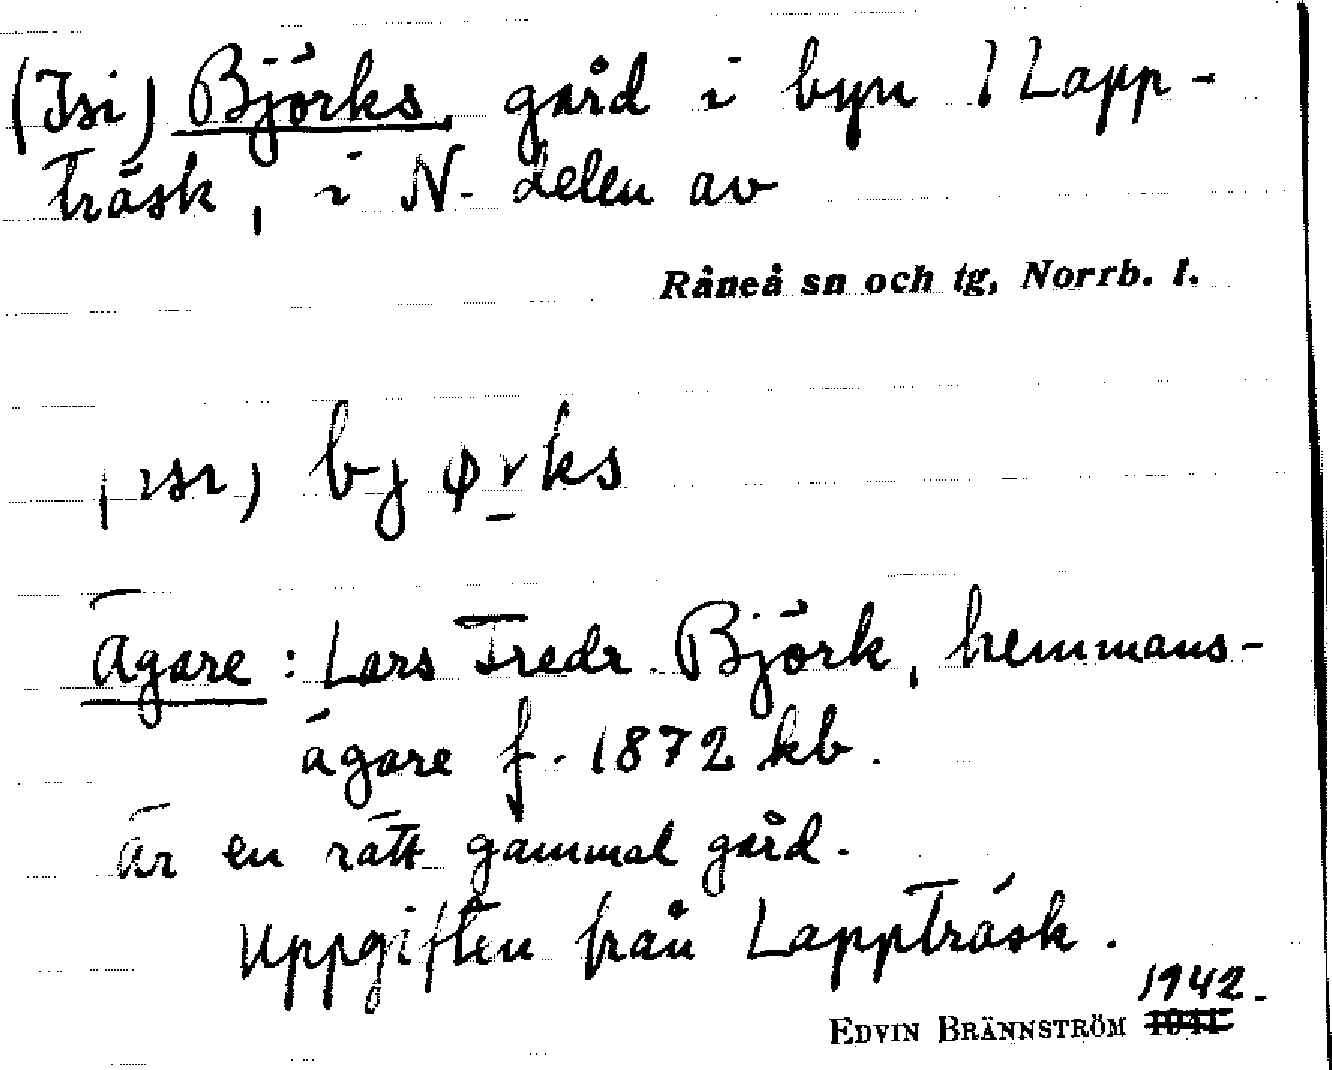 (Isi) Björks, gård i byn l Lapp-
träsk, i N. delen av
Råneå sn och tg, Norrb. l.
(ɪsɪ) bjørks
Ägare : Lars Fredr. Björk, hemmans-
ägare f. 1872 kb.
Är en rätt gammal gård.
Uppgiften från Lappträsk.
1942.
EDVIN BRÄNNSTRÖM 1941